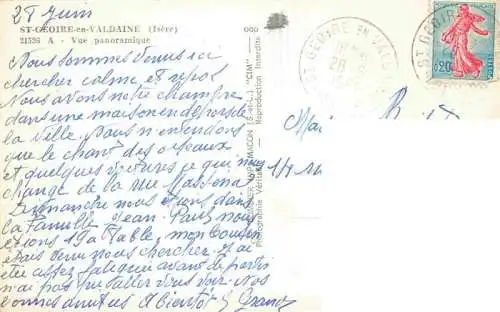 28 Juin
ST-GEOIRE-en-VALDAINE (Isère)
21526 A - Vue panoramique
Nous sommes venus ici
chercher calme et repos
Nous avons notre chambre
dans une maison en dehors de
la ville. Nous n'entendons
que le chant des oiseaux
et quelques voitures ce qui nous
change de la rue Massena
Dimanche nous étions dans
la famille Jean-Paul nous
étions 19 a Table, mon Cousin
étais venu nous chercher. j'ai
été assez fatiguée avant de partir
n'ai pas pu aller vous voir. Nos
bonnes amitiés A bientôt
"CIM"
MACON (S.-et-L.)
Photographie Véritable
Reproduction Interdite
ST GEOIRE EN VALD
18
28
0,20
ST GEOIRE